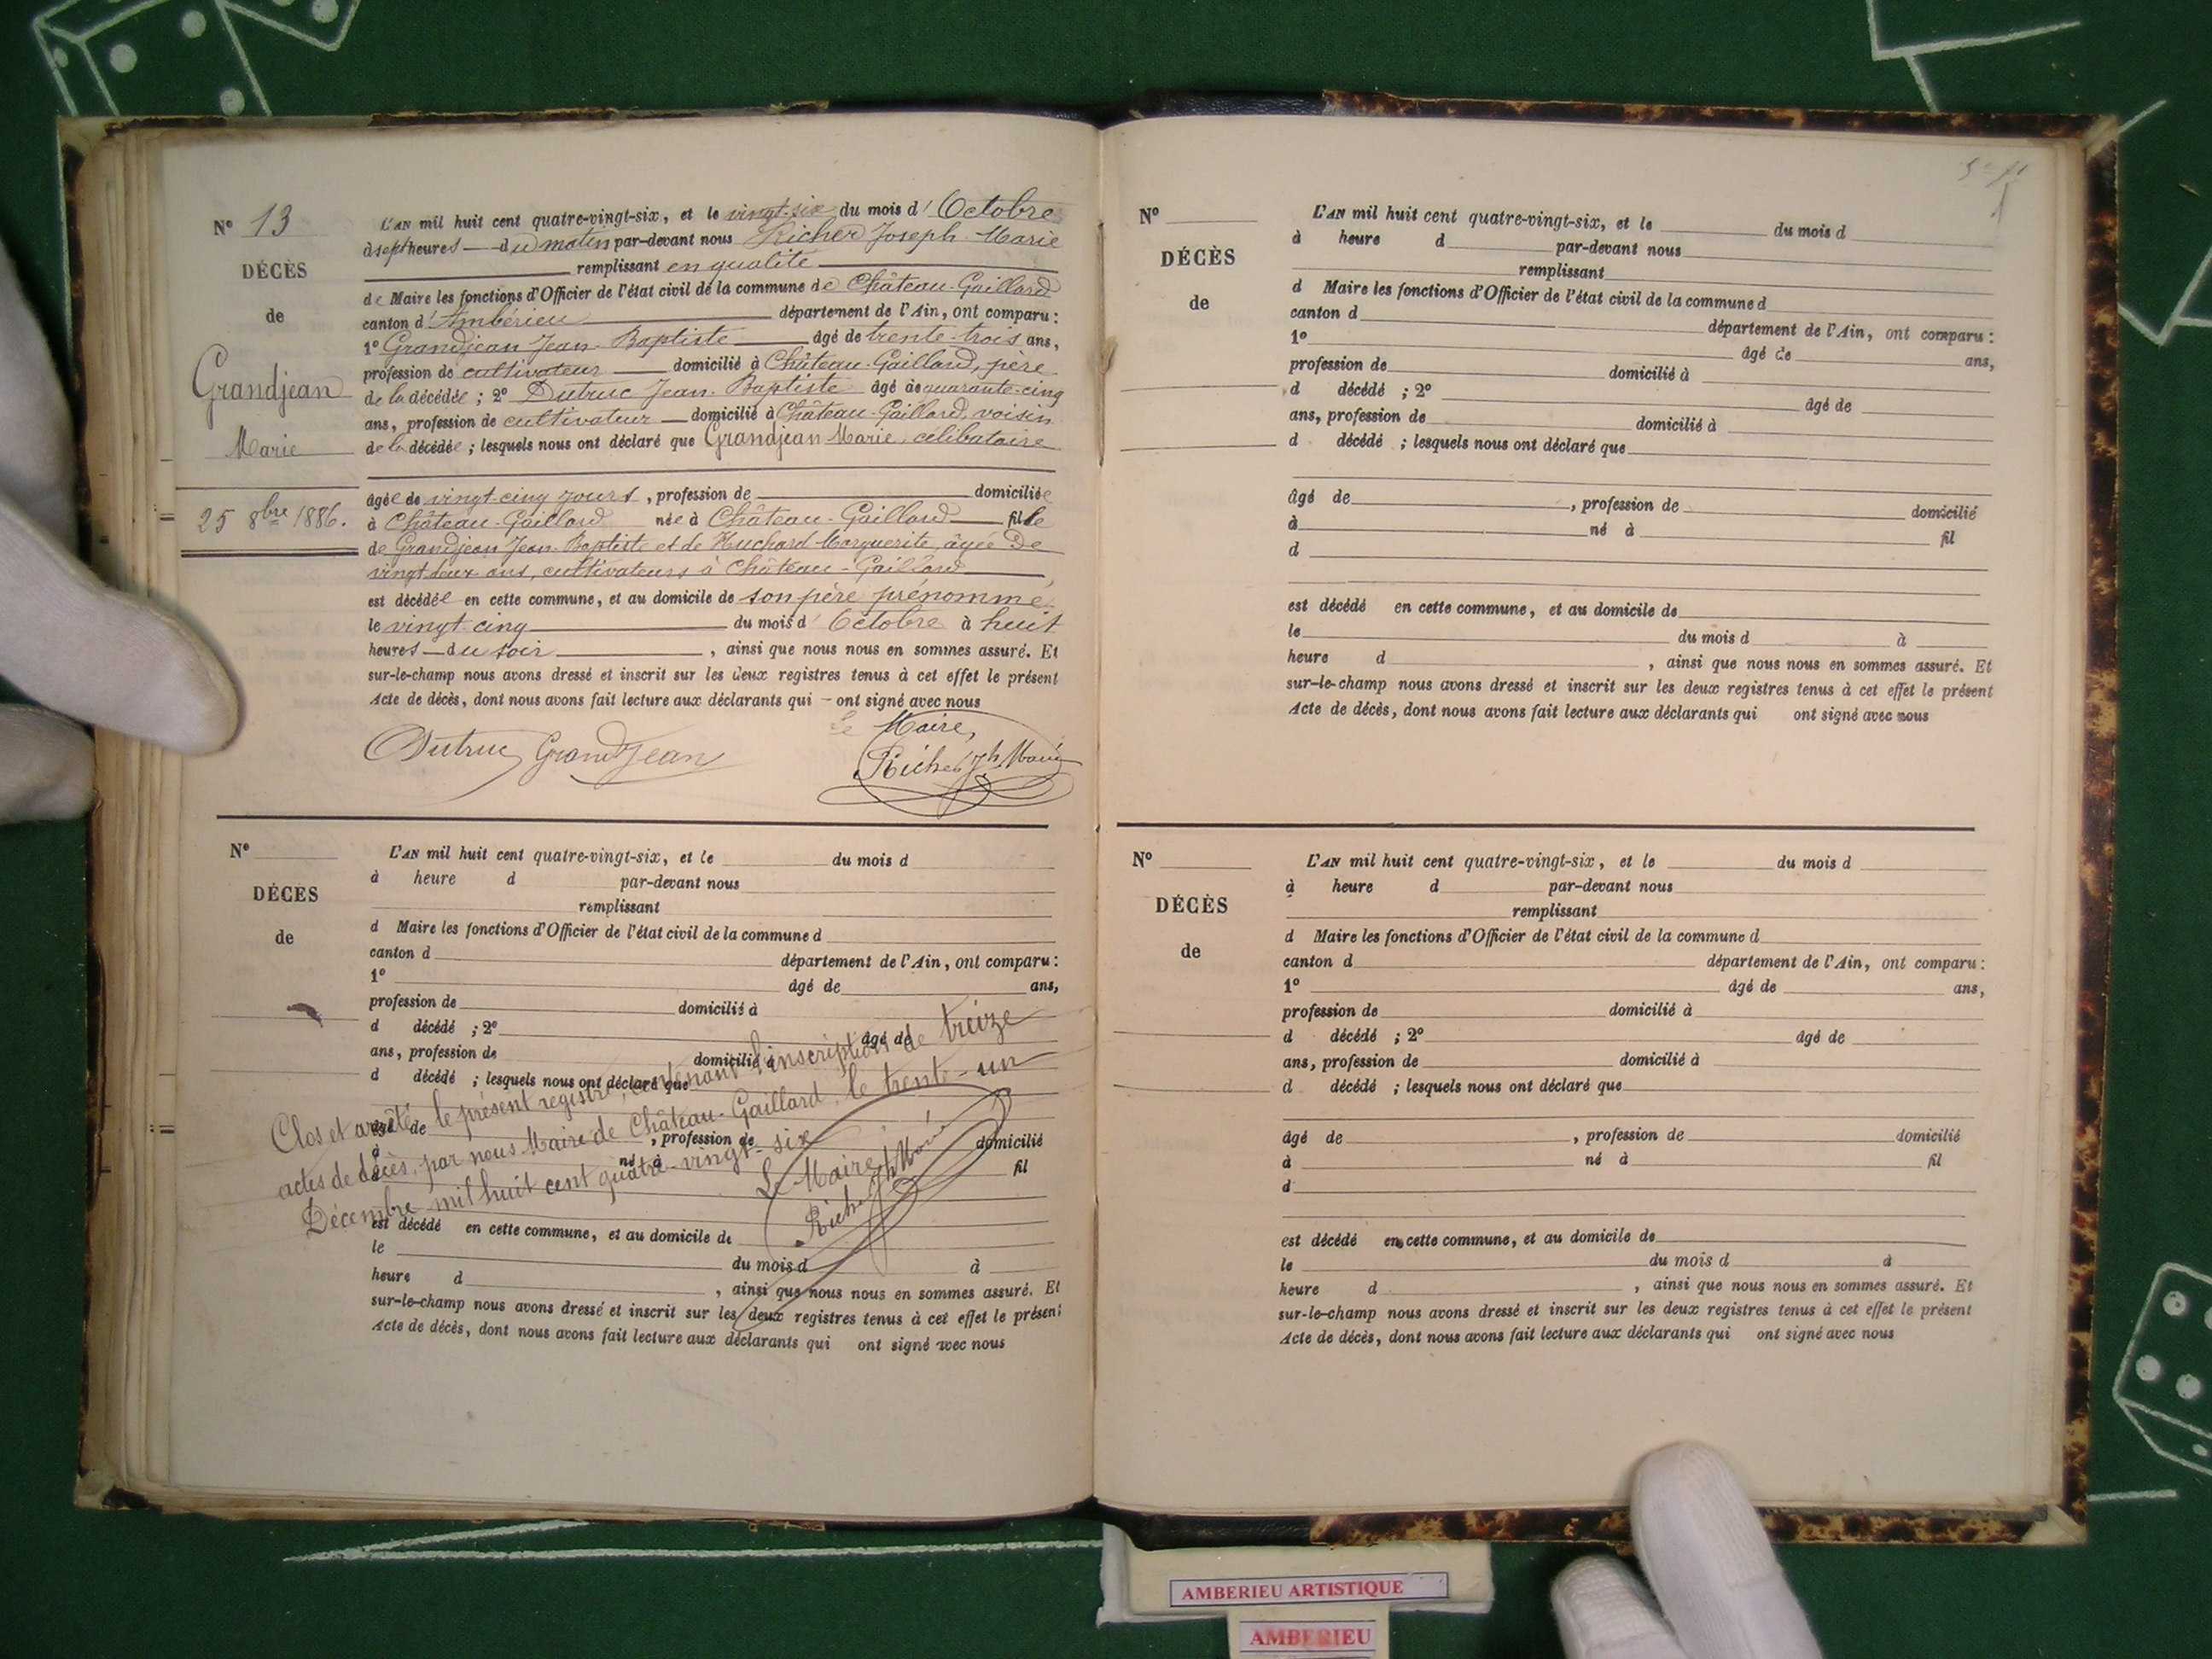 N° 13
DÉCÈS
de
Grandjean
Marie
25 8bre 1886.
L'AN mil huit cent quatre-vingt-six, et le vingt-six du mois d' Octobre
à sept heures — du matin par-devant nous Richer Joseph Marie
remplissant en qualité
de Maire les fonctions d'Officier de l'état civil de la commune de Château-Gaillard
canton d' Ambérieu département de l'Ain, ont comparu :
1° Grandjean Jean-Baptiste âgé de trente-trois ans,
profession de cultivateur domicilié à Château-Gaillard, père
de la décédée ; 2° Dutruc Jean-Baptiste âgé de quarante-cinq
ans, profession de cultivateur domicilié à Château-Gaillard, voisin
de la décédée ; lesquels nous ont déclaré que Grandjean Marie, célibataire
âgée de vingt-cinq jours, profession de domiciliée
à Château-Gaillard née à Château-Gaillard fille
de Grandjean Jean-Baptiste et de Huchard Marguerite, âgée de
vingt-deux ans, cultivateurs à Château-Gaillard
est décédée en cette commune, et au domicile de son père prénommé
le vingt-cinq du mois d' Octobre à huit
heures — du soir, ainsi que nous nous en sommes assuré. Et
sur-le-champ nous avons dressé et inscrit sur les deux registres tenus à cet effet le présent
Acte de décès, dont nous avons fait lecture aux déclarants qui — ont signé avec nous
Le Maire,
Dutruc Grandjean Richer Jh Marie
N°
DÉCÈS
de
L'AN mil huit cent quatre-vingt-six, et le du mois d
à heure d par-devant nous
remplissant
d Maire les fonctions d'Officier de l'état civil de la commune d
canton d département de l'Ain, ont comparu :
1° âgé de ans,
profession de domicilié à
d décédé ; 2° âgé de
ans, profession de domicilié à
d décédé ; lesquels nous ont déclaré que
âgé de , profession de domicilié
à né à fil
d
est décédé en cette commune, et au domicile de
le du mois d à
heure d , ainsi que nous nous en sommes assuré. Et
sur-le-champ nous avons dressé et inscrit sur les deux registres tenus à cet effet le présent
Acte de décès, dont nous avons fait lecture aux déclarants qui ont signé avec nous
Clos et arrêté le présent registre, contenant l'inscription de treize
actes de décès, par nous Maire de Château-Gaillard, le trente-un
Décembre mil huit cent quatre-vingt-six
Le Maire
Richer Jh Marie
N°
DÉCÈS
de
L'AN mil huit cent quatre-vingt-six, et le du mois d
à heure d par-devant nous
remplissant
d Maire les fonctions d'Officier de l'état civil de la commune d
canton d département de l'Ain, ont comparu :
1° âgé de ans,
profession de domicilié à
d décédé ; 2° âgé de
ans, profession de domicilié à
d décédé ; lesquels nous ont déclaré que
âgé de , profession de domicilié
à né à fil
d
est décédé en cette commune, et au domicile de
le du mois d à
heure d , ainsi que nous nous en sommes assuré. Et
sur-le-champ nous avons dressé et inscrit sur les deux registres tenus à cet effet le présent
Acte de décès, dont nous avons fait lecture aux déclarants qui ont signé avec nous
N°
DÉCÈS
de
L'AN mil huit cent quatre-vingt-six, et le du mois d
à heure d par-devant nous
remplissant
d Maire les fonctions d'Officier de l'état civil de la commune d
canton d département de l'Ain, ont comparu :
1° âgé de ans,
profession de domicilié à
d décédé ; 2° âgé de
ans, profession de domicilié à
d décédé ; lesquels nous ont déclaré que
âgé de , profession de domicilié
à né à fil
d
est décédé en cette commune, et au domicile de
le du mois d à
heure d , ainsi que nous nous en sommes assuré. Et
sur-le-champ nous avons dressé et inscrit sur les deux registres tenus à cet effet le présent
Acte de décès, dont nous avons fait lecture aux déclarants qui ont signé avec nous
AMBERIEU ARTISTIQUE
AMBERIEU